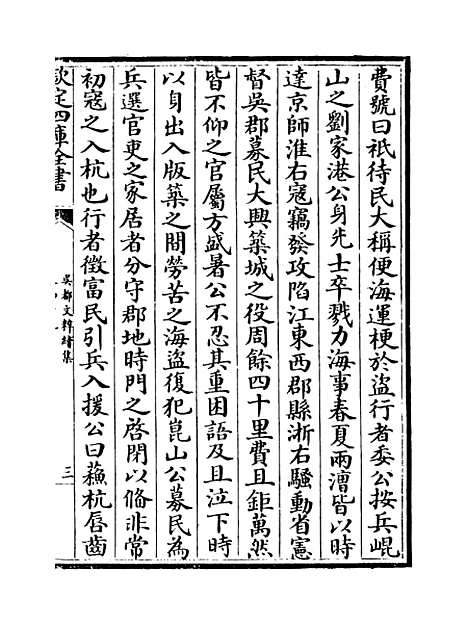 費號曰祇待民大稱便海運梗於盜行者委公按兵崐
山之劉家港公身先士卒戮力海事春夏兩漕皆以時
達京師淮右寇竊發攻陷江東西郡縣浙右騷動省憲
督吳郡募民大興築城之役周餘四十里費且鉅萬然
皆不仰之官屬方盛暑公不忍其重困語及且泣下時
以身出入版築之間勞苦之海盜復犯崑山公募民為
兵選官吏之家居者分守郡地時門之啓閉以俻非常
初寇之入杭也行者徵富民引兵入援公曰蘓杭唇齒
欽定四庫全書
吳都文粹續集
三